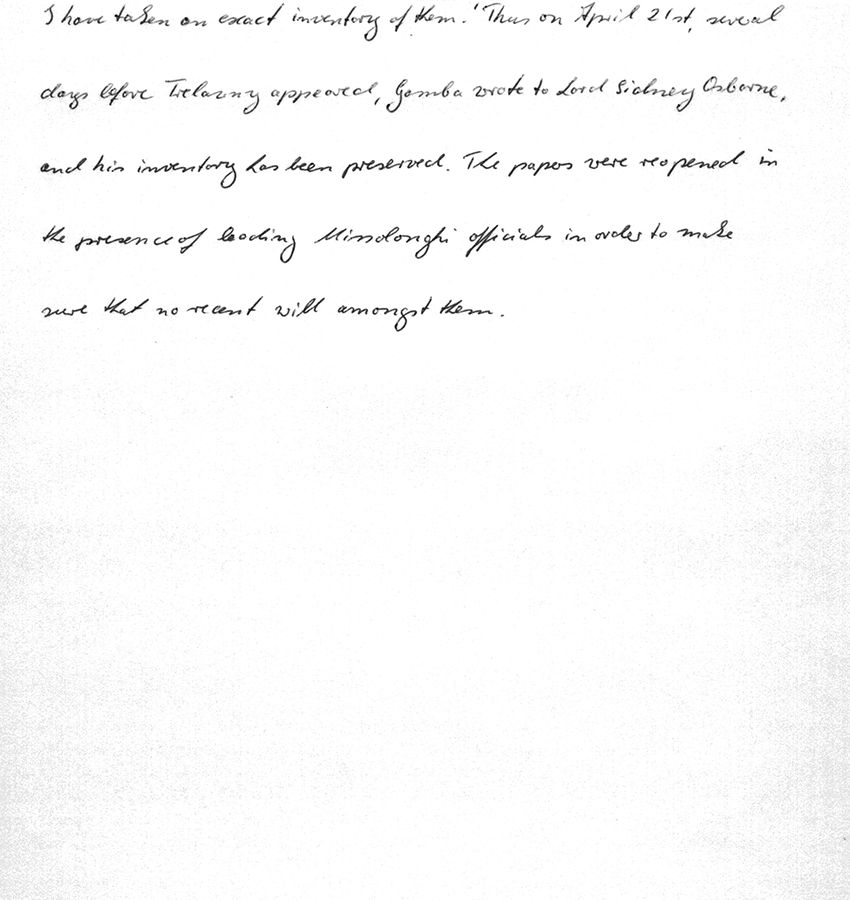 I have taken an exact inventory of them.' Thus on April 21st, several
days before Trelawny appeared, Gamba wrote to Lord Sidney Osborne,
and his inventory has been preserved. The papers were reopened in
the presence of leading Missolonghi officials in order to make
sure that no recent will amongst them.